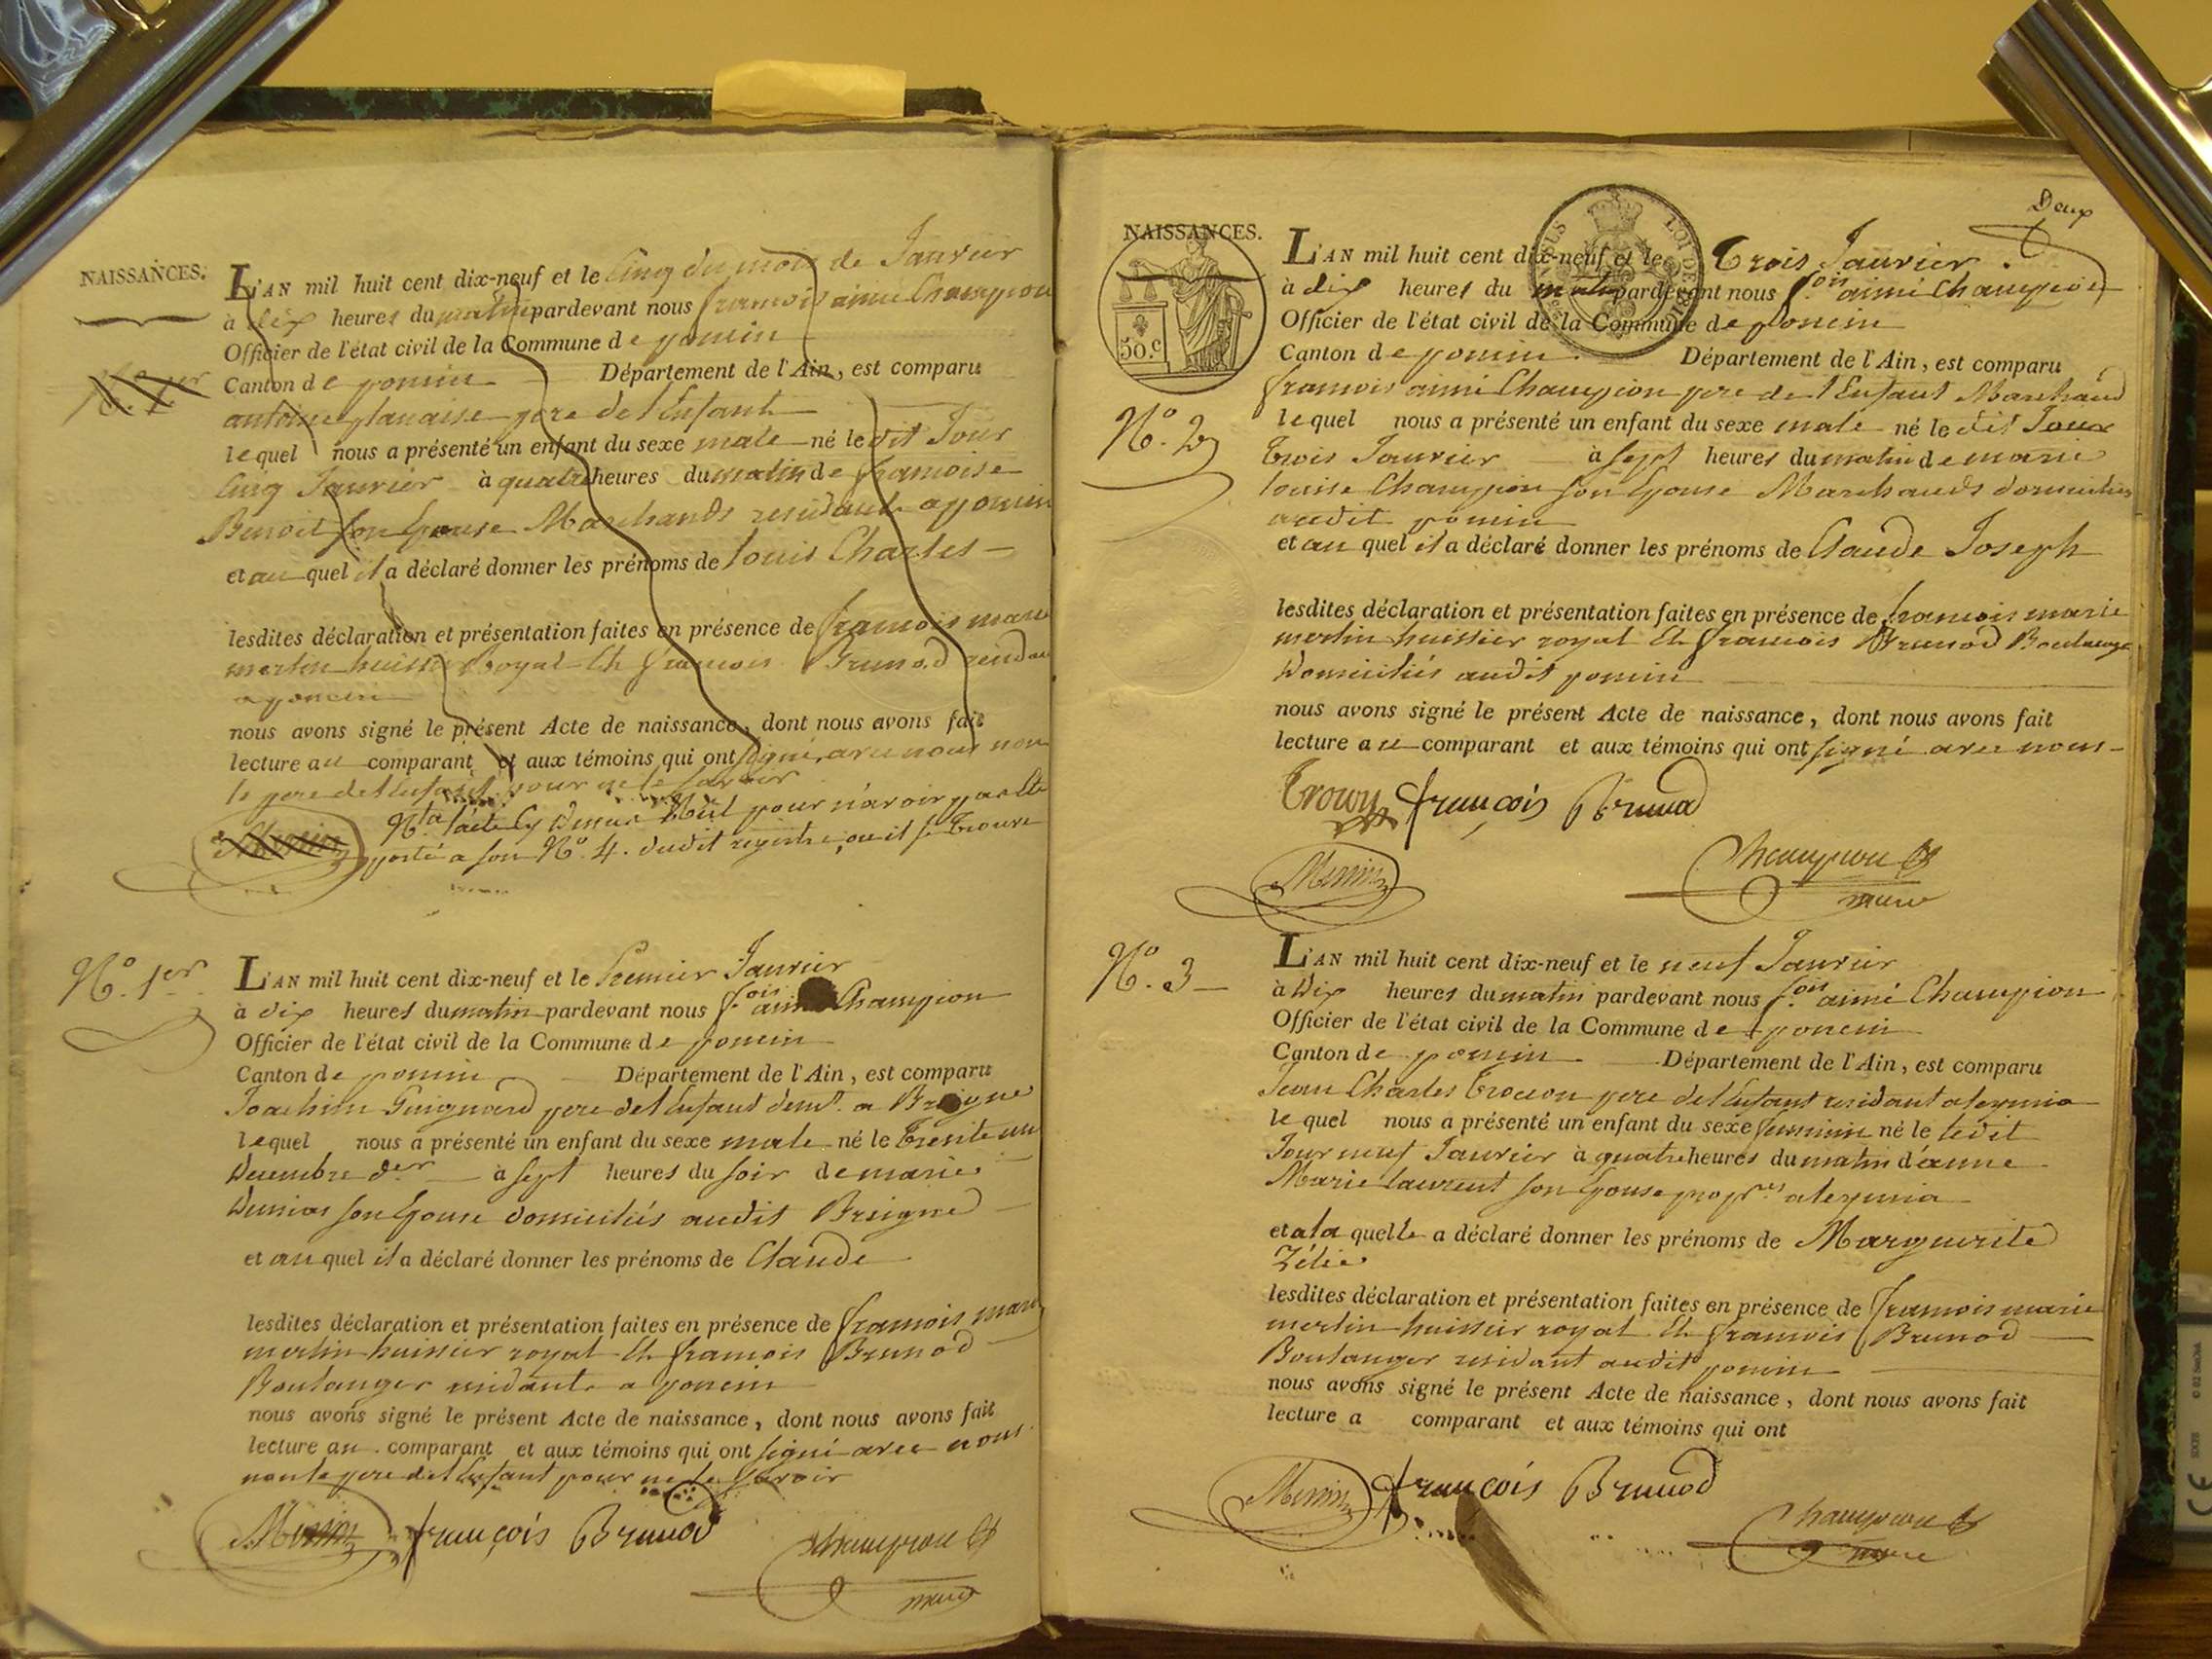 NAISSANCES.
L'AN mil huit cent dix-neuf et le Cinq du mois de Janvier
à dix heures du matin pardevant nous francois aimé Champion
Officier de l'état civil de la Commune de poncin
Canton de poncin Département de l'Ain, est comparu
antoine père de l'Enfant
lequel nous a présenté un enfant du sexe male né le dit Jour
Cinq Janvier à quatre heures du matin de francoise
Benoit son Epouse Marchands residants a poncin
et au quel il a déclaré donner les prénoms de Louis Charles
lesdites déclaration et présentation faites en présence de francois marie
merlin huissier royal Et francois Brunod
a poncin
nous avons signé le présent Acte de naissance, dont nous avons fait
lecture au comparant et aux témoins qui ont signé avec nous non
le pere de l'Enfant pour ne le savoir
Nta l'acte Cy dessus Nul pour n'avoir pas été
porté a son No. 4. dudit registre, ou il se trouve
No. 1er
L'AN mil huit cent dix-neuf et le Premier Janvier
à dix heures du matin pardevant nous f.ois aimé Champion
Officier de l'état civil de la Commune de poncin
Canton de poncin Département de l'Ain, est comparu
Joachim Guignard pere de l'Enfant demt. a Breigne
lequel nous a présenté un enfant du sexe male né le trente un
Decembre der à sept heures du soir de marie
son Epouse domiciliés audit Breigne
et au quel il a déclaré donner les prénoms de Claude
lesdites déclaration et présentation faites en présence de francois marie
merlin huissier royal Et francois Brunod
Boulanger residants a poncin
nous avons signé le présent Acte de naissance, dont nous avons fait
lecture au comparant et aux témoins qui ont signé avec nous
non le pere de l'Enfant pour ne le savoir
Merlin françois Brunod Champion
maire
Deux
NAISSANCES.
50.c
L'AN mil huit cent dix-neuf et le Trois Janvier
à dix heures du matin pardevant nous f.ois aimé Champion
Officier de l'état civil de la Commune de poncin
Canton de poncin Département de l'Ain, est comparu
francois aimé Champion pere de l'Enfant Marchand
No. 2
lequel nous a présenté un enfant du sexe male né le dit Jour
trois Janvier à sept heures du matin de marie
louise Champion son Epouse Marchands domiciliés
audit poncin
et au quel il a déclaré donner les prénoms de Claude Joseph
lesdites déclaration et présentation faites en présence de francois marie
merlin huissier royal Et francois Brunod Boulanger
Domiciliés audit poncin
nous avons signé le présent Acte de naissance, dont nous avons fait
lecture au comparant et aux témoins qui ont signé avec nous
françois Brunod
Merlin Champion
maire
No. 3
L'AN mil huit cent dix-neuf et le neuf Janvier
à Dix heures du matin pardevant nous f.ois aimé Champion
Officier de l'état civil de la Commune de poncin
Canton de poncin Département de l'Ain, est comparu
Jean Charles pere de l'Enfant residant a leymia
lequel nous a présenté un enfant du sexe feminin né le ledit
Jour neuf Janvier à quatre heures du matin d'anne
Marie Laurent son Epouse propres. a leymia
et a la quelle a déclaré donner les prénoms de Marguerite
Zélie
lesdites déclaration et présentation faites en présence de francois marie
merlin huissier royal Et francois Brunod
Boulanger residant audit poncin
nous avons signé le présent Acte de naissance, dont nous avons fait
lecture a comparant et aux témoins qui ont
Merlin françois Brunod
Champion
maire